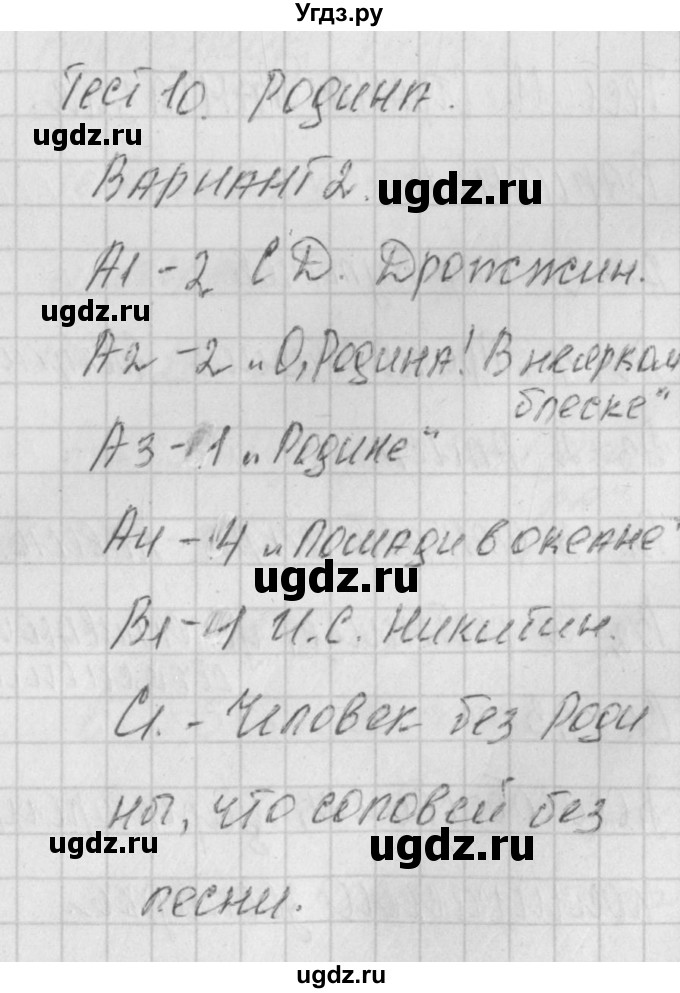 Угдз.ру
Тест 10. Родина.
ugdz.ru
Вариант 2.
ugdz.ru
А1 - 2 С Д. Дрожжин.
ugdz.ru
А2 - 2 „О, Родина! В неярком
блеске"
А3 - 1 „Родине"
А4 - 4 „Лошади в океане"
ugdz.ru
В1 - 1 И. С. Никитин.
С1. - Человек без Роди
ны, что соловей без
ugdz.ru
ugdz.ru
песни.
ugdz.ru